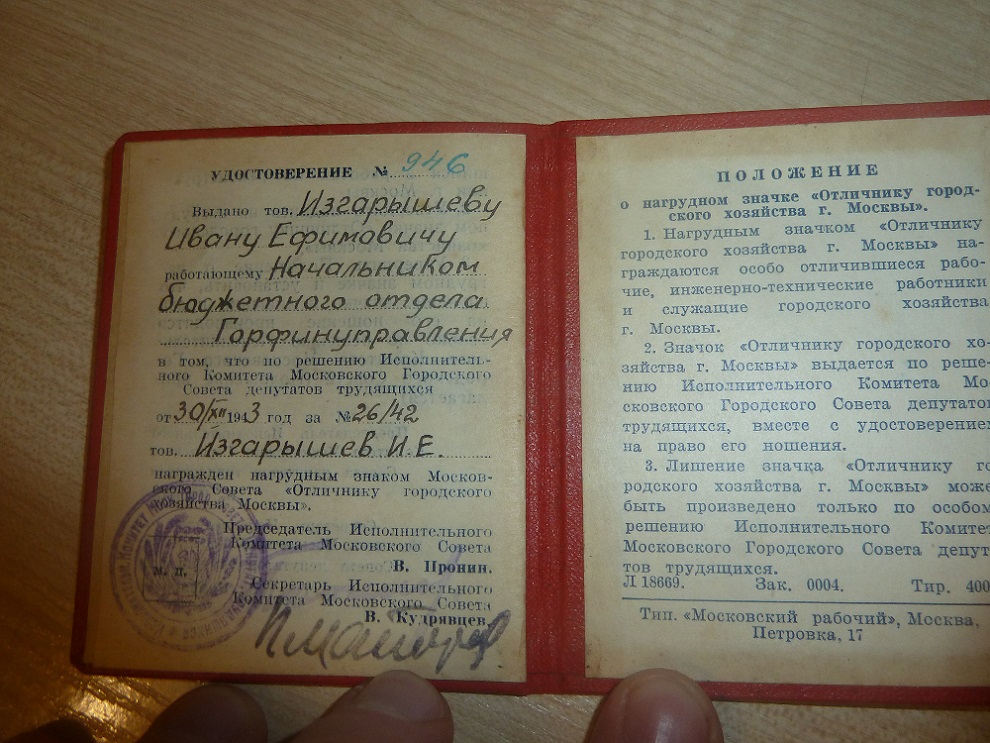 УДОСТОВЕРЕНИЕ № 946
Выдано тов. Изгарышеву
Ивану Ефимовичу
работающему Начальником
бюджетного отдела
Горфинуправления
в том, что по решению Исполнитель-
ного Комитета Московского Городского
Совета депутатов трудящихся
от 30/XII 1943 год за № 26/42
тов. Изгарышев И.Е.
награжден нагрудным знаком Москов-
ского Совета «Отличнику городского
хозяйства Москвы».
Председатель Исполнительного
Комитета Московского Совета
В. Пронин.
М. П.
Секретарь Исполнительного
Комитета Московского Совета
В. Кудрявцев.
ПОЛОЖЕНИЕ
о нагрудном значке «Отличнику город-
ского хозяйства г. Москвы».
1. Нагрудным значком «Отличнику
городского хозяйства г. Москвы» на-
граждаются особо отличившиеся рабо-
чие, инженерно-технические работники
и служащие городского хозяйства
г. Москвы.
2. Значок «Отличнику городского хо-
зяйства г. Москвы» выдается по реше-
нию Исполнительного Комитета Мо-
сковского Городского Совета депутатов
трудящихся, вместе с удостоверением
на право его ношения.
3. Лишение значка «Отличнику го-
родского хозяйства г. Москвы» може
быть произведено только по особом
решению Исполнительного Комитет
Московского Городского Совета депут
тов трудящихся.
Л 18669. Зак. 0004. Тир. 400
Тип. «Московский рабочий», Москва,
Петровка, 17